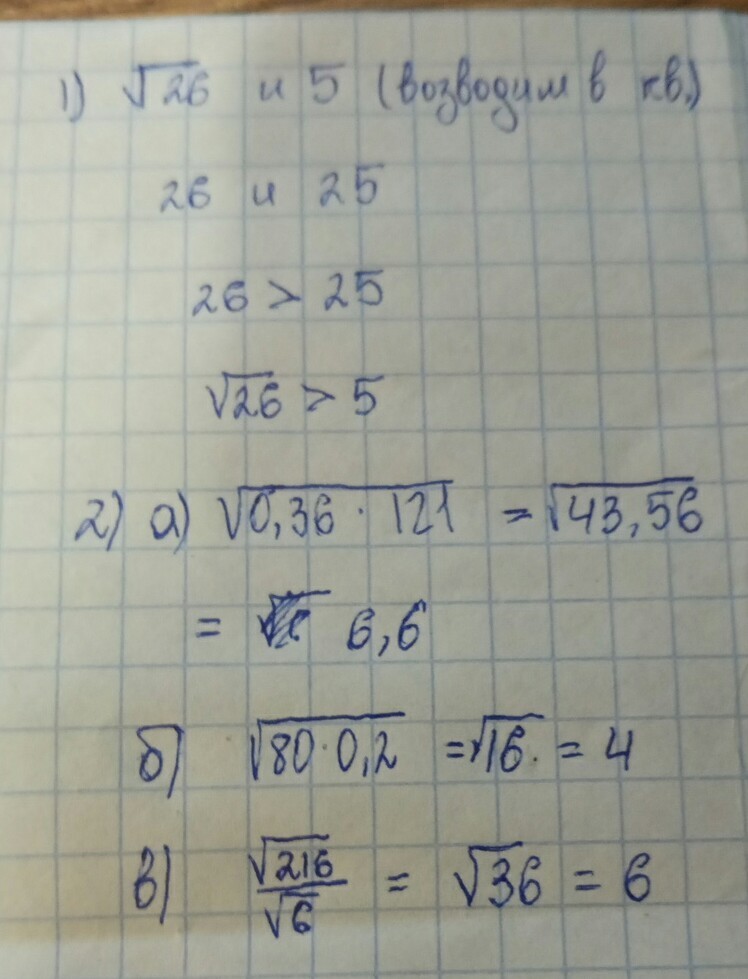 1) √26 и 5 (возводим в кв.)
26 и 25
26 > 25
√26 > 5
2) а) √0,36 · 121 = √43,56
= 6,6
б) √80 · 0,2 = √16 = 4
в) √216/√6 = √36 = 6